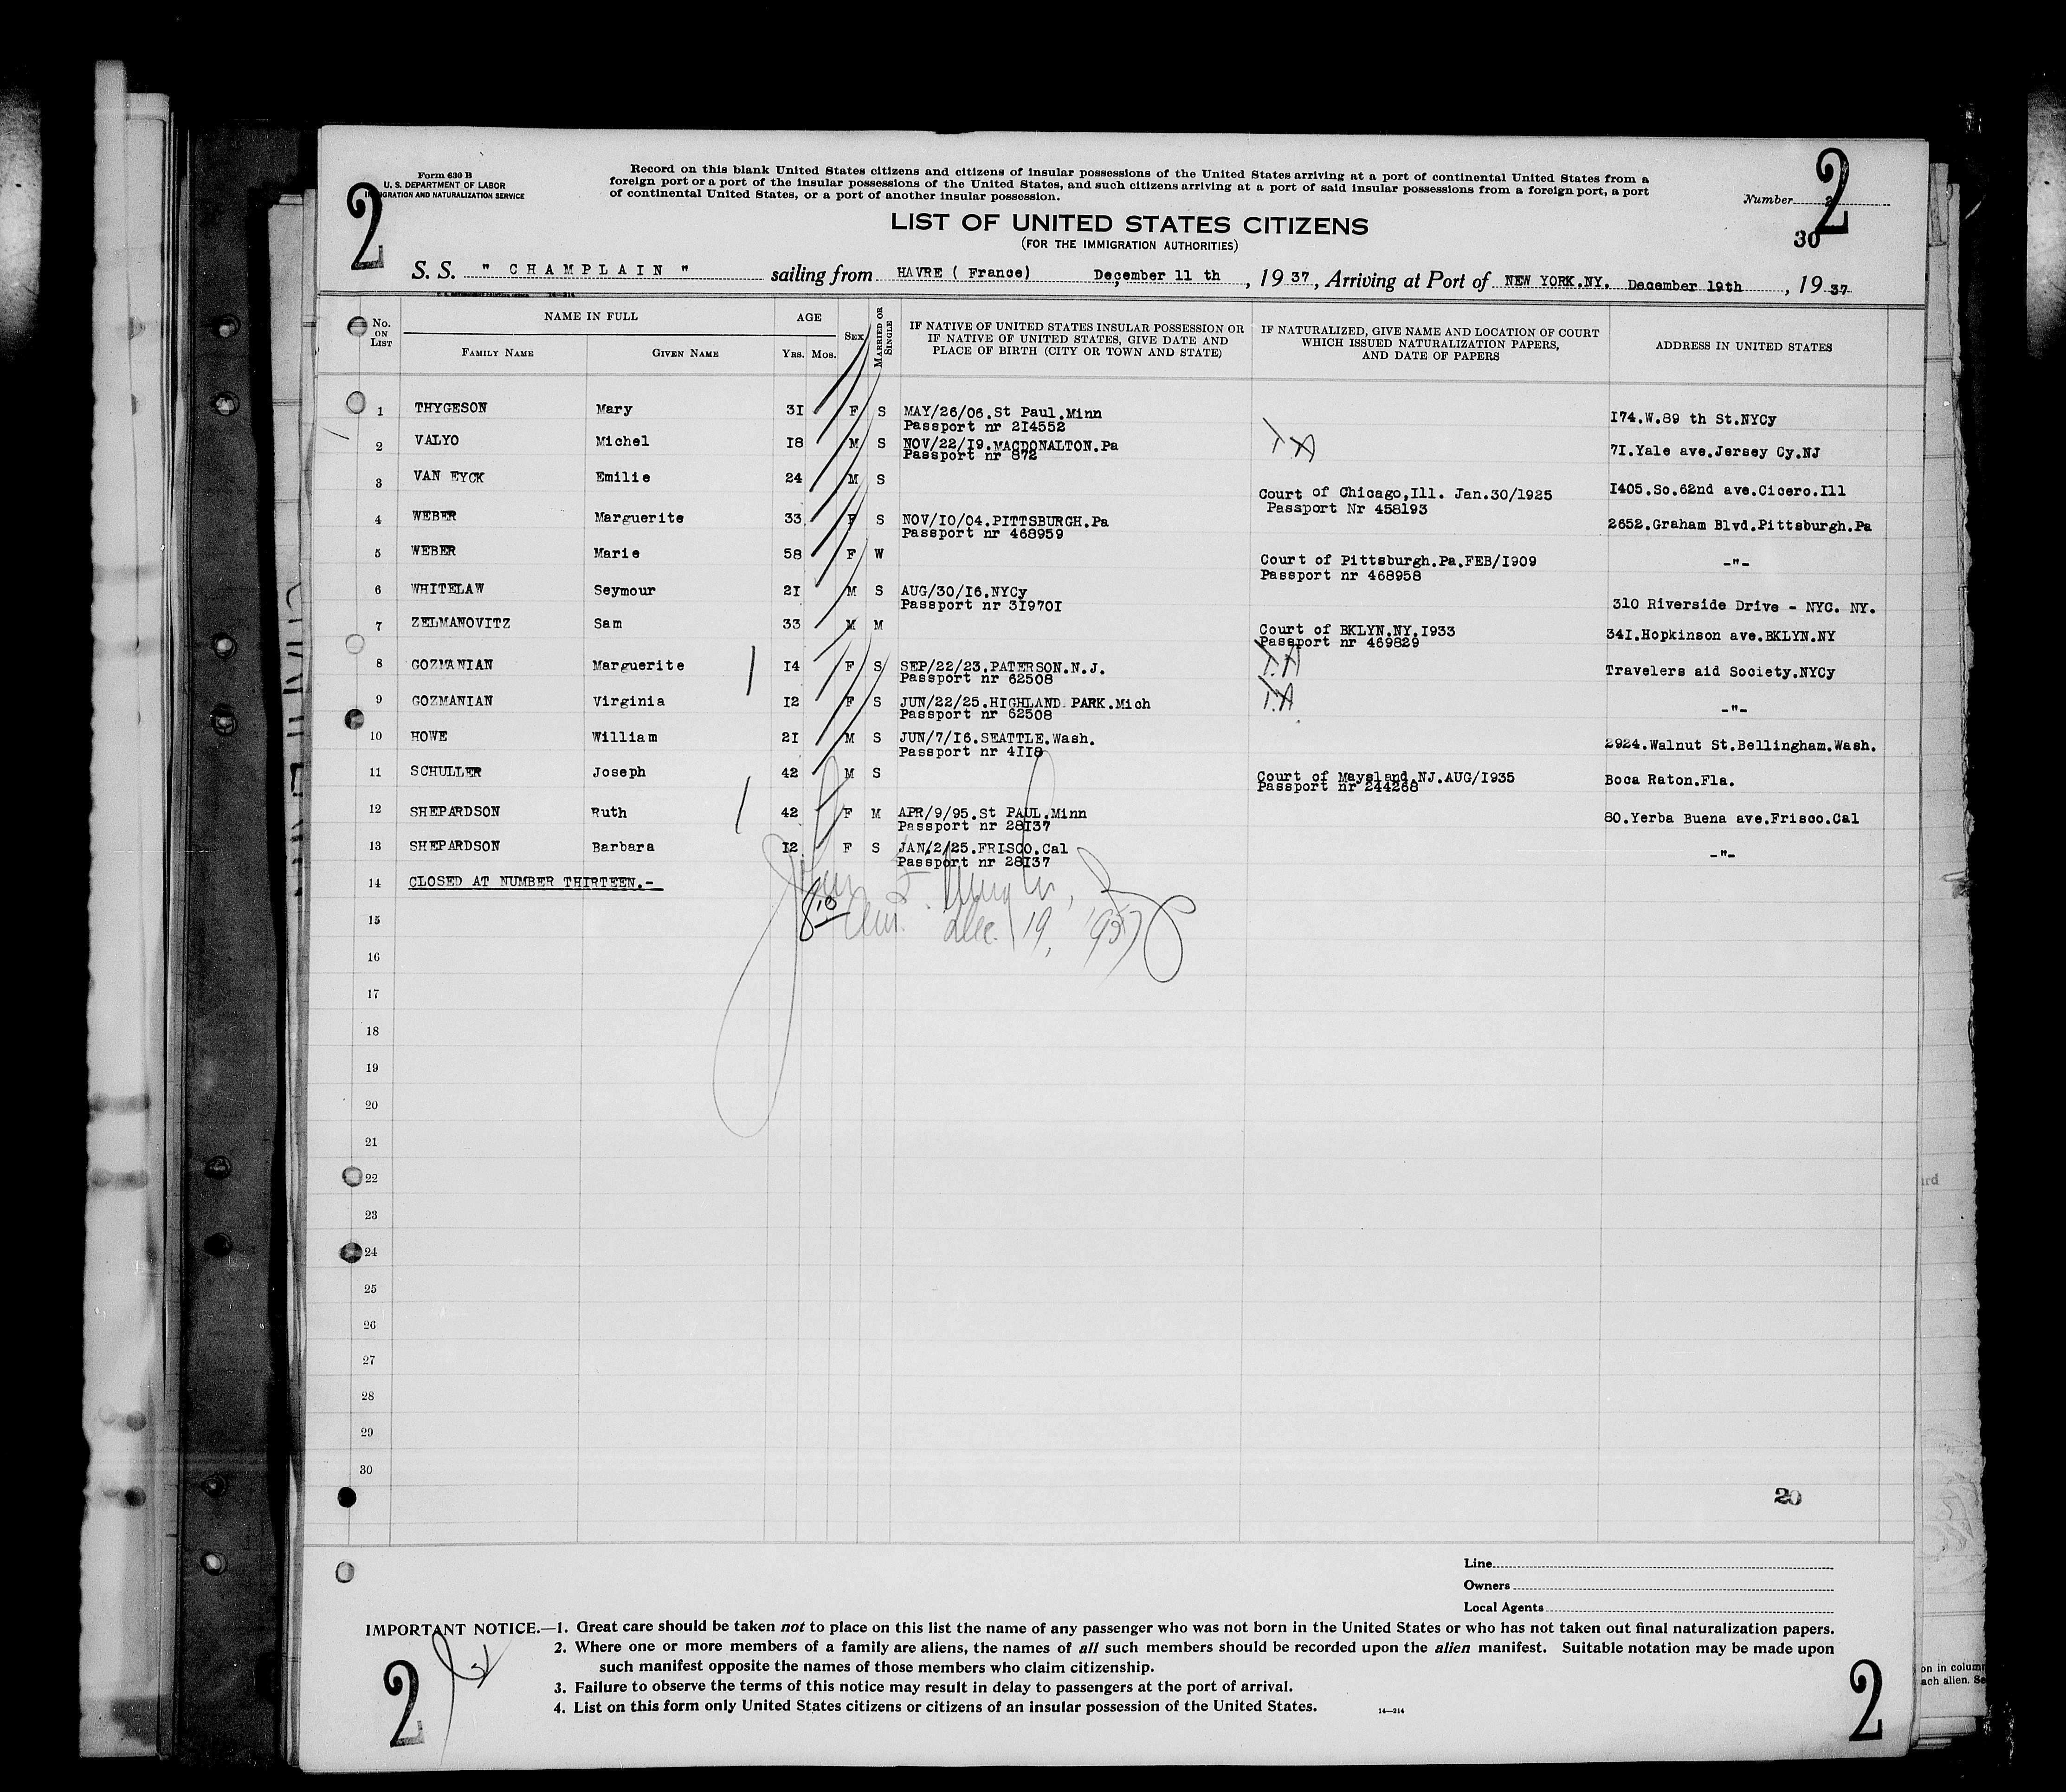 2
2
Form 630 B
U. S. DEPARTMENT OF LABOR
IMMIGRATION AND NATURALIZATION SERVICE
Record on this blank United States citizens and citizens of insular possessions of the United States arriving at a port of continental United States from a
foreign port or a port of the insular possessions of the United States, and such citizens arriving at a port of said insular possessions from a foreign port, a port
of continental United States, or a port of another insular possession.
Number 2
30
LIST OF UNITED STATES CITIZENS
(FOR THE IMMIGRATION AUTHORITIES)
S. S. " CHAMPLAIN " sailing from HAVRE ( France) December 11 th , 19 37, Arriving at Port of NEW YORK.NY. December 19th , 19 37
No. ON LIST NAME IN FULL AGE SEX MARRIED OR SINGLE IF NATIVE OF UNITED STATES INSULAR POSSESSION OR IF NATIVE OF UNITED STATES, GIVE DATE AND PLACE OF BIRTH (CITY OR TOWN AND STATE) IF NATURALIZED, GIVE NAME AND LOCATION OF COURT WHICH ISSUED NATURALIZATION PAPERS, AND DATE OF PAPERS ADDRESS IN UNITED STATES
FAMILY NAME GIVEN NAME YRS. MOS.
1 THYGESON Mary 3I F S MAY/26/06.St Paul.Minn I74.W.89 th St.NYCy
Passport nr 2I4552
2 VALYO Michel I8 M S NOV/22/I9.MACDONALTON.Pa TA 7I.Yale ave.Jersey Cy.NJ
Passport nr 872
3 VAN EYCK Emilie 24 M S Court of Chicago,Ill. Jan.30/1925 I405.So.62nd ave.Cicero.Ill
Passport Nr 458193
4 WEBER Marguerite 33 F S NOV/I0/04.PITTSBURGH.Pa 2652.Graham Blvd.Pittsburgh.Pa
Passport nr 468959
5 WEBER Marie 58 F W Court of Pittsburgh.Pa.FEB/I909 -"-
Passport nr 468958
6 WHITELAW Seymour 2I M S AUG/30/I6.NYCy 310 Riverside Drive - NYC. NY.
Passport nr 3I970I
7 ZELMANOVITZ Sam 33 M M Court of BKLYN.NY.I933 34I.Hopkinson ave.BKLYN.NY
Passport nr 469829
8 GOZMANIAN Marguerite I4 F S SEP/22/23.PATERSON.N.J. T.A Travelers aid Society.NYCy
Passport nr 62508
9 GOZMANIAN Virginia I2 F S JUN/22/25.HIGHLAND PARK.Mich T.A -"-
Passport nr 62508
10 HOWE William 2I M S JUN/7/I6.SEATTLE.Wash. 2924.Walnut St.Bellingham.Wash.
Passport nr 4II8
11 SCHULLER Joseph 42 M S Court of Maysland.NJ.AUG/I935 Boca Raton.Fla.
Passport nr 244268
12 SHEPARDSON Ruth 42 F M APR/9/95.St PAUL.Minn 80.Yerba Buena ave.Frisco.Cal
Passport nr 28I37
13 SHEPARDSON Barbara I2 F S JAN/2/25.FRISCO.Cal -"-
Passport nr 28I37
14 CLOSED AT NUMBER THIRTEEN.-
15 Dec. 19, 1937
16
17
18
19
20
21
22
23
24
25
26
27
28
29
30
20
Line
Owners
Local Agents
IMPORTANT NOTICE.—1. Great care should be taken not to place on this list the name of any passenger who was not born in the United States or who has not taken out final naturalization papers.
2. Where one or more members of a family are aliens, the names of all such members should be recorded upon the alien manifest. Suitable notation may be made upon
such manifest opposite the names of those members who claim citizenship.
3. Failure to observe the terms of this notice may result in delay to passengers at the port of arrival.
4. List on this form only United States citizens or citizens of an insular possession of the United States.
14—214
2
2